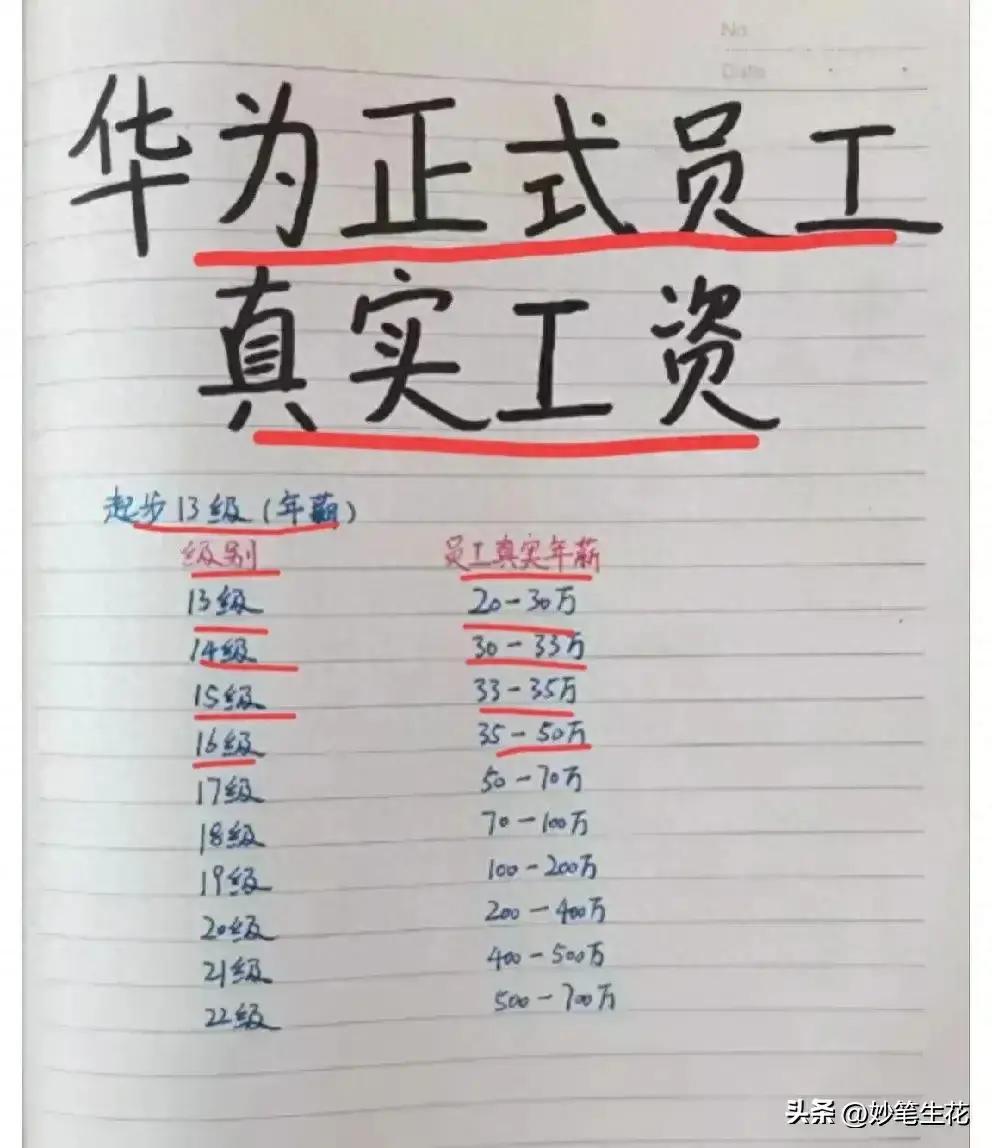 No
Date
华为正式员工
真实工资
起步13级(年薪)
级别 员工真实年薪
13级 20-30万
14级 30-33万
15级 33-35万
16级 35-50万
17级 50-70万
18级 70-100万
19级 100-200万
20级 200-400万
21级 400-500万
22级 500-700万
头条 @妙笔生花